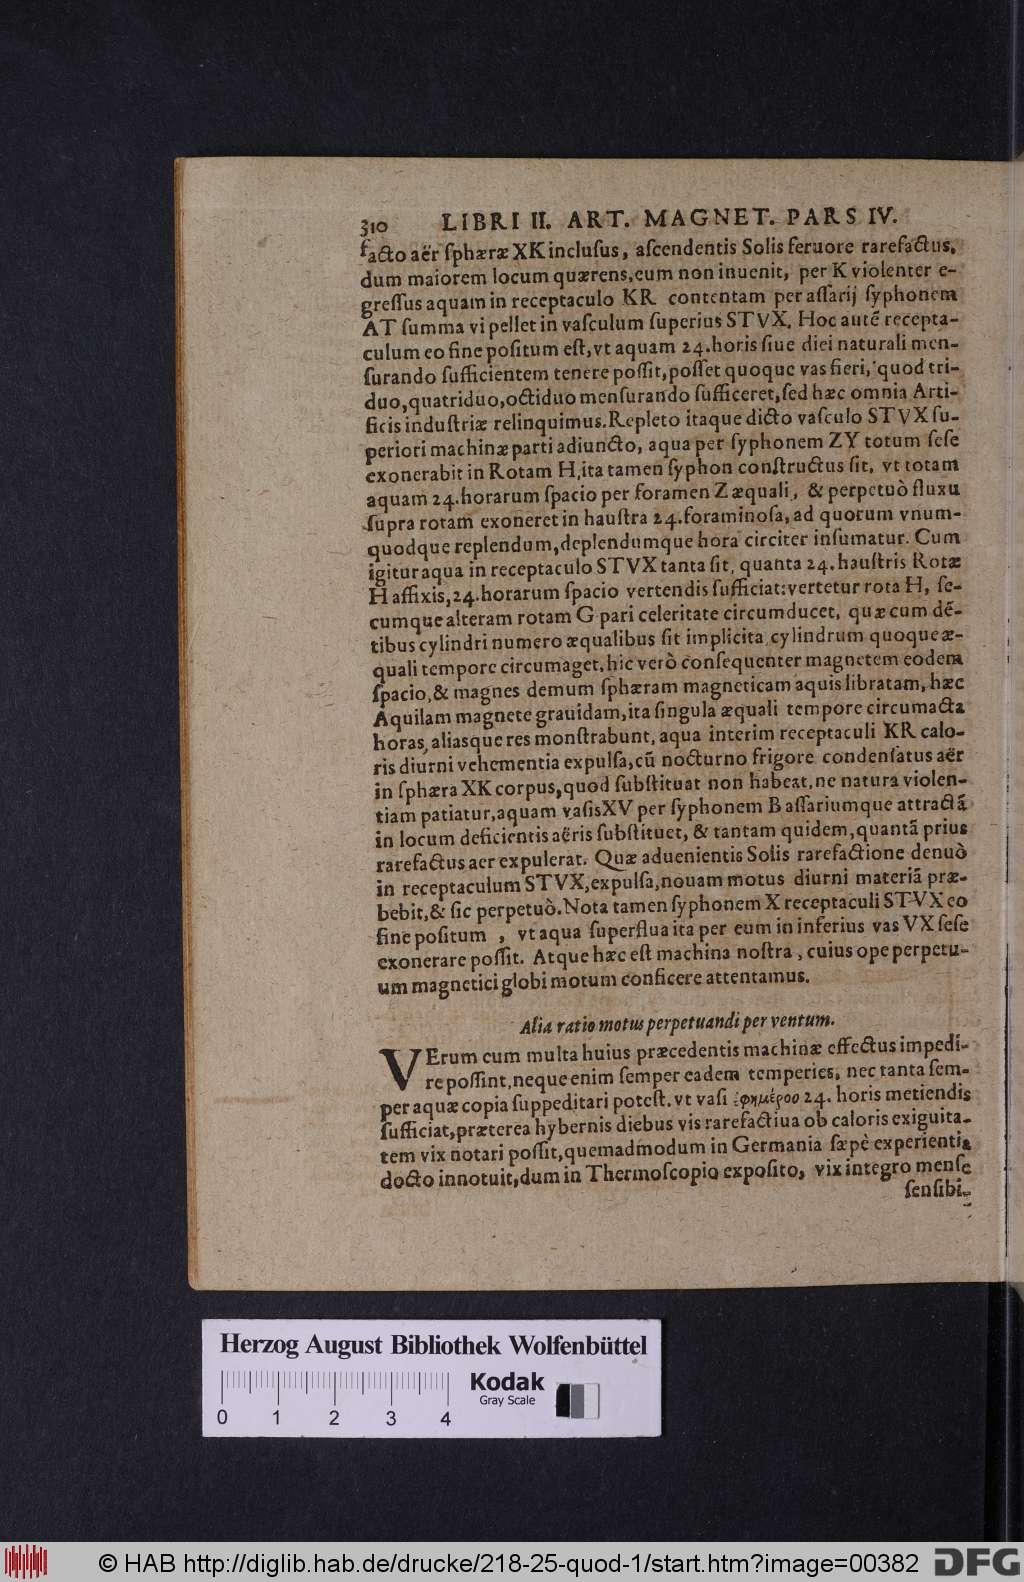 310 LIBRI II. ART. MAGNET. PARS IV.
facto aër ſphæræ XK incluſus, aſcendentis Solis feruore rarefactus,
dum maiorem locum quærens, eum non inuenit, per K violenter e-
greſſus aquam in receptaculo KR contentam per aſſarij ſyphonem
AT ſumma vi pellet in vaſculum ſuperius STVX. Hoc autē recepta-
culum eo fine poſitum eſt, vt aquam 24. horis ſiue diei naturali men-
ſurando ſufficientem tenere poſſit, poſſet quoque vas fieri, quod tri-
duo, quatriduo, octiduo menſurando ſufficeret, ſed hæc omnia Arti-
ficis induſtriæ relinquimus. Repleto itaque dicto vaſculo STVX ſu-
periori machinæ parti adiuncto, aqua per ſyphonem ZY totum ſeſe
exonerabit in Rotam H, ita tamen ſyphon conſtructus ſit, vt totam
aquam 24. horarum ſpacio per foramen Z æquali, & perpetuò fluxu
ſupra rotam exoneret in hauſtra 24. foraminoſa, ad quorum vnum-
quodque replendum, deplendumque hora circiter inſumatur. Cum
igitur aqua in receptaculo STVX tanta ſit, quanta 24. hauſtris Rotæ
H affixis, 24. horarum ſpacio vertendis ſufficiat: vertetur rota H, ſe-
cumque alteram rotam G pari celeritate circumducet, quæ cum dē-
tibus cylindri numero æqualibus ſit implicita, cylindrum quoque æ-
quali tempore circumaget, hic verò conſequenter magnetem eodem
ſpacio, & magnes demum ſphæram magneticam aquis libratam, hæc
Aquilam magnete grauidam, ita ſingula æquali tempore circumacta
horas, aliasque res monſtrabunt, aqua interim receptaculi KR calo-
ris diurni vehementia expulſa, cū nocturno frigore condenſatus aër
in ſphæra XK corpus, quod ſubſtituat non habeat, ne natura violen-
tiam patiatur, aquam vaſis XV per ſyphonem B aſſariumque attractā
in locum deficientis aëris ſubſtituet, & tantam quidem, quantā prius
rarefactus aer expulerat. Quæ aduenientis Solis rarefactione denuò
in receptaculum STVX, expulſa, nouam motus diurni materiā præ-
bebit, & ſic perpetuò. Nota tamen ſyphonem X receptaculi STVX eo
fine poſitum, vt aqua ſuperflua ita per eum in inferius vas VX ſeſe
exonerare poſſit. Atque hæc eſt machina noſtra, cuius ope perpetu-
um magnetici globi motum conficere attentamus.
Alia ratio motus perpetuandi per ventum.
VErum cum multa huius præcedentis machinæ effectus impedi-
re poſſint, neque enim ſemper eadem temperies, nec tanta ſem-
per aquæ copia ſuppeditari poteſt, vt vaſi ἐφημέροο 24. horis metiendis
ſufficiat, præterea hybernis diebus vis rarefactiua ob caloris exiguita-
tem vix notari poſſit, quemadmodum in Germania ſæpè experientia
docto innotuit, dum in Thermoſcopio expoſito, vix integro menſe
ſenſibi-
Herzog August Bibliothek Wolfenbüttel
0 1 2 3 4
Kodak
Gray Scale
© HAB http://diglib.hab.de/drucke/218-25-quod-1/start.htm?image=00382
DFG